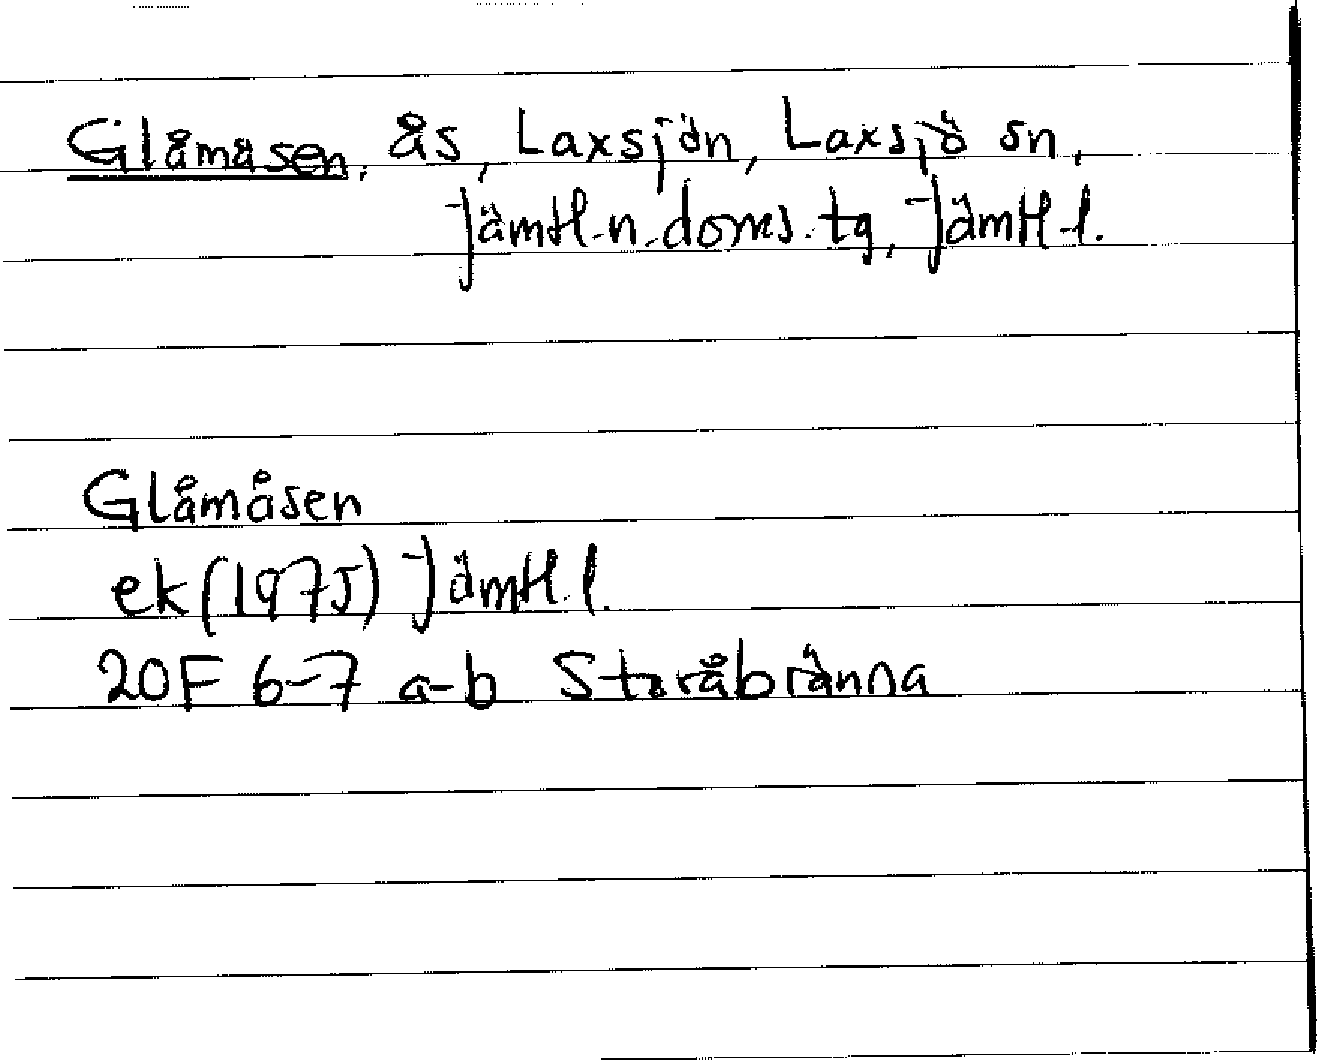 Glåmåsen, ås, Laxsjön, Laxsjö sn,
Jämtl. n. doms. tg, Jämtl. l.
Glåmåsen
ek (1975) Jämtl. l.
20F 6-7 a-b Storåbränna